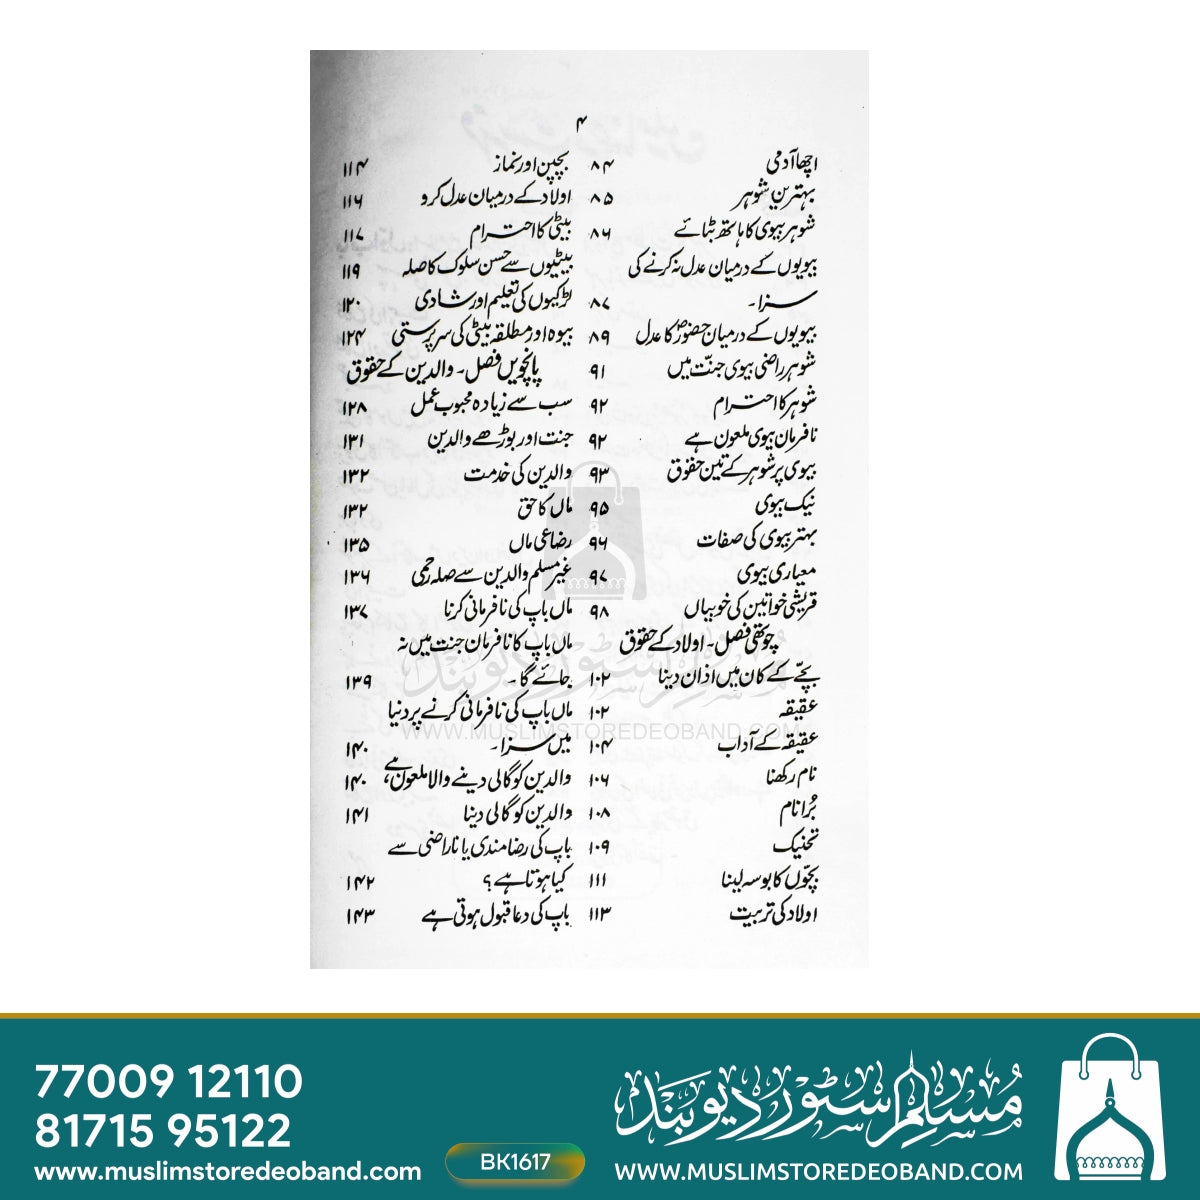 ۴
اچھا آدمی ۸۴
بہترین شوہر ۸۵
شوہر بیوی کا ہاتھ بٹائے ۸۶
بیویوں کے درمیان عدل نہ کرنے کی
سزا۔ ۸۷
بیویوں کے درمیان حضورؐ کا عدل ۸۹
شوہر راضی بیوی جنّت میں ۹۱
شوہر کا احترام ۹۲
نافرمان بیوی ملعون ہے ۹۲
بیوی پر شوہر کے تین حقوق ۹۳
نیک بیوی ۹۵
بہتر بیوی کی صفات ۹۶
معیاری بیوی ۹۷
قریشی خواتین کی خوبیاں ۹۸
چوتھی فصل۔ اولاد کے حقوق
بچّے کے کان میں اذان دینا ۱۰۲
عقیقہ ۱۰۲
عقیقہ کے آداب ۱۰۴
نام رکھنا ۱۰۶
بُرا نام ۱۰۸
تحنیک ۱۰۹
بچّوں کا بوسہ لینا ۱۱۱
اولاد کی تربیت ۱۱۳
بچپن اور نماز ۱۱۴
اولاد کے درمیان عدل کرو ۱۱۶
بیٹی کا احترام ۱۱۷
بیٹیوں سے حسن سلوک کا صلہ ۱۱۹
لڑکیوں کی تعلیم اور شادی ۱۲۰
بیوہ اور مطلقہ بیٹی کی سرپرستی ۱۲۴
پانچویں فصل۔ والدین کے حقوق
سب سے زیادہ محبوب عمل ۱۲۸
جنت اور بوڑھے والدین ۱۳۱
والدین کی خدمت ۱۳۲
ماں کا حق ۱۳۲
رضاعی ماں ۱۳۵
غیر مسلم والدین سے صلہ رحمی ۱۳۶
ماں باپ کی نافرمانی کرنا ۱۳۷
ماں باپ کا نافرمان جنت میں نہ
جائے گا۔ ۱۳۹
ماں باپ کی نافرمانی کرنے پر دنیا
میں سزا۔ ۱۴۰
والدین کو گالی دینے والا ملعون ہے ۱۴۰
والدین کو گالی دینا ۱۴۱
باپ کی رضامندی یا ناراضی سے
کیا ہوتا ہے؟ ۱۴۲
باپ کی دعا قبول ہوتی ہے ۱۴۳
مسلم سٹور دیوبند
WWW.MUSLIMSTOREDEOBAND.COM
77009 12110
81715 95122
www.muslimstoredeoband.com
BK1617
مُسلم سٹور دیوبند
WWW.MUSLIMSTOREDEOBAND.COM